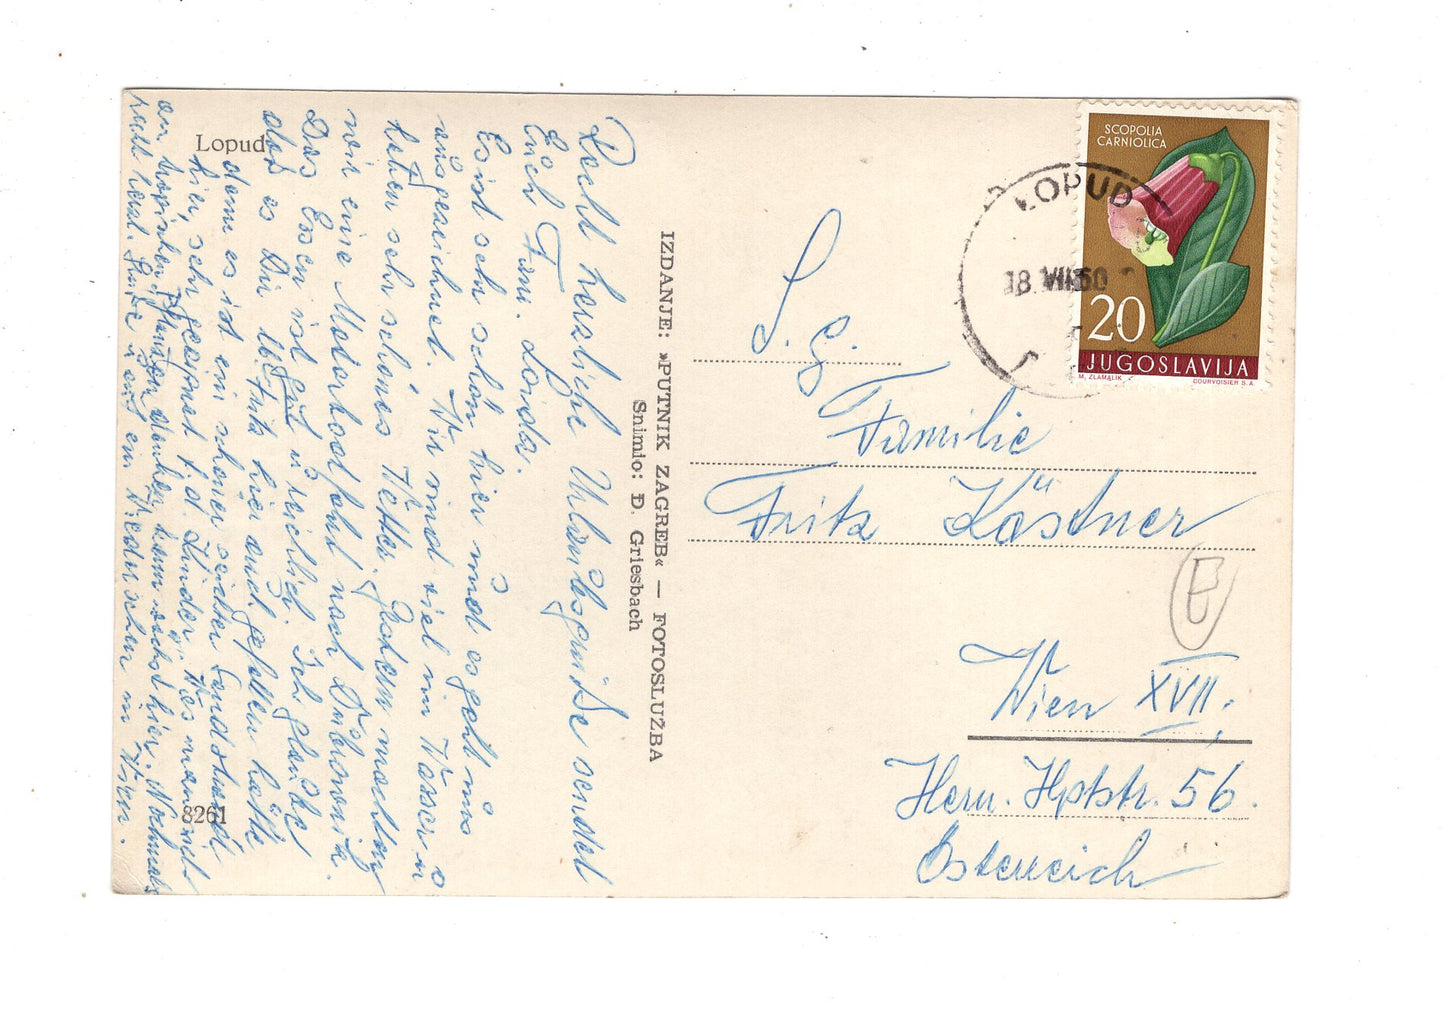 Lopud
Recht herzliche Urlaubsgrüße sendet
Euch Fam. Londa.
Es ist sehr schön hier und es geht uns
ausgezeichnet. Wir sind viel im Wasser u
haben sehr schönes Wetter. Gestern machten
wir eine Motorbootfahrt nach Dubrovnik.
Das Essen ist gut u reichlich. Ich glaube
daß es Dir lb. Fritz hier auch gefallen hätte
denn es ist ein schöner seichter Sandstrand
hier, sehr geeignet f. d. Kinder. Was man
an tropischen Pflanzen denken kann wächst hier. Nochmals
recht herzl. Grüße u auf ein Wiedersehen in Wien.
8261
IZDANJE: »PUTNIK ZAGREB« — FOTOSLUŽBA
Snimio: Đ. Griesbach
SCOPOLIA
CARNIOLICA
20
JUGOSLAVIJA
M. ZLAMALIK
COURVOISIER S.A.
LOPUD
S. g.
Familie
Fritz Kästner
E
Wien XVII.
Hern. Hptstr. 56.
Österreich